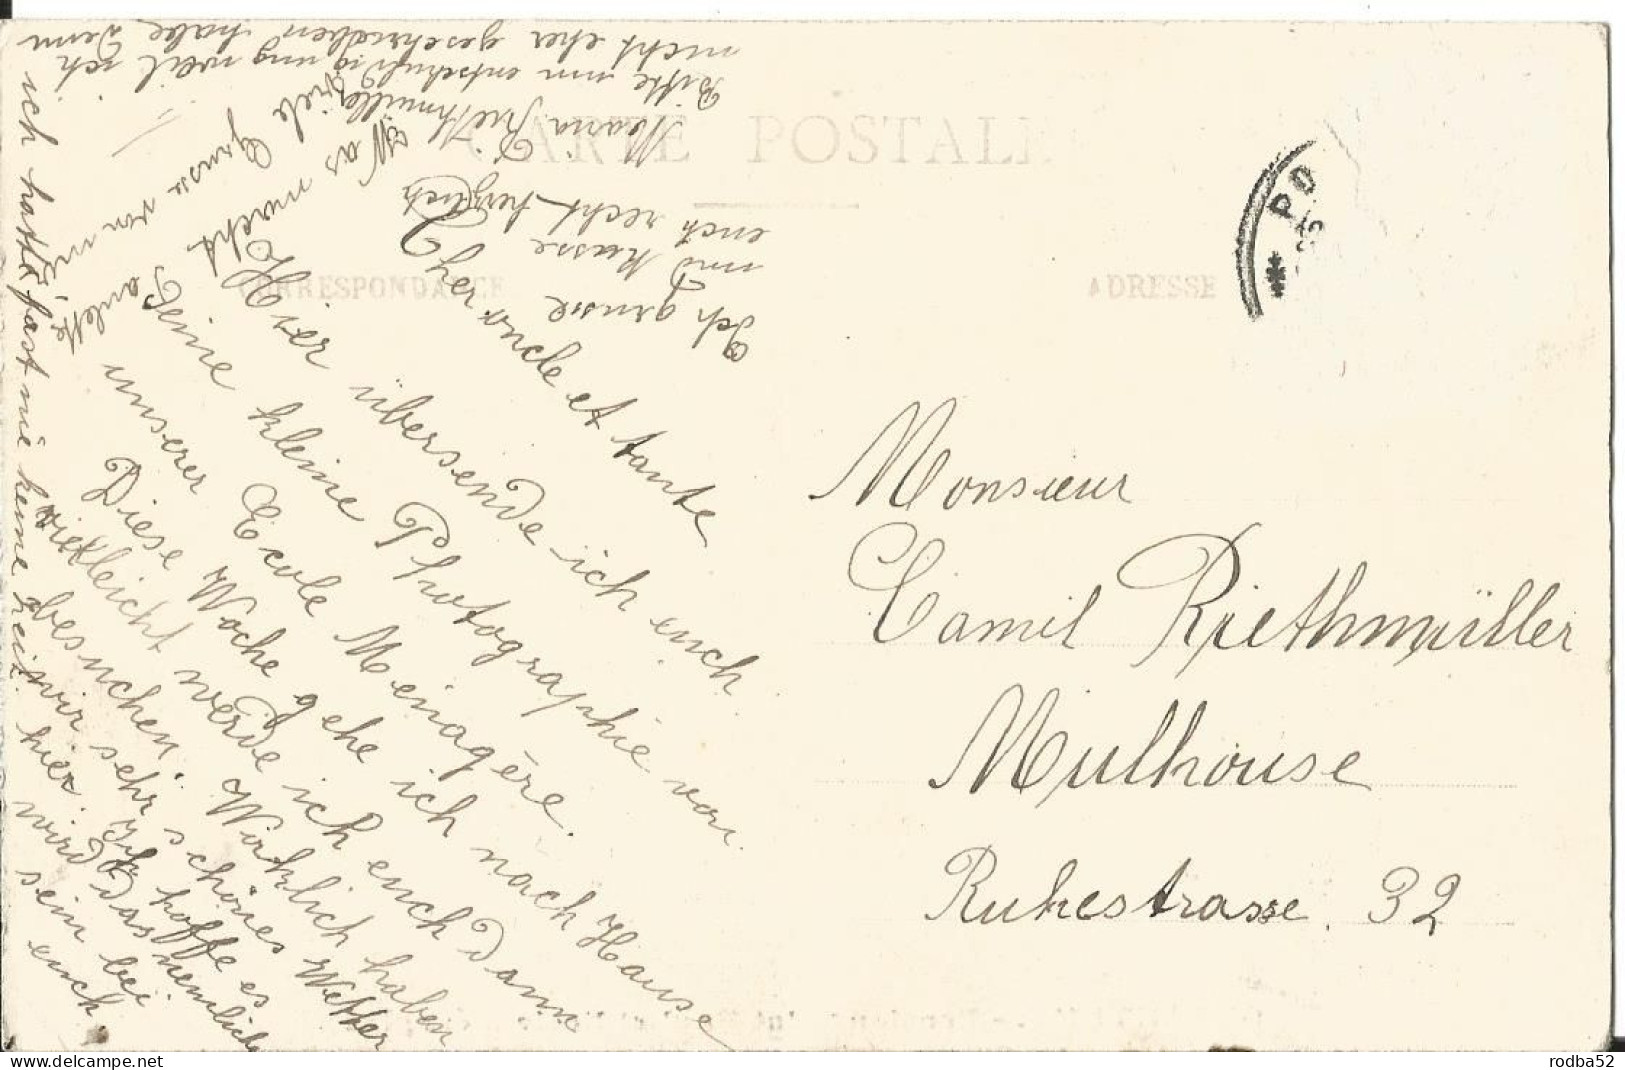 CARTE POSTALE
CORRESPONDANCE
ADRESSE
Monsieur
Camil Riethmüller
Mulhouse
Ruhestrasse. 32
Cher oncle et tante
Hier übersende ich euch
eine kleine Photographie von
unserer Ecole Meinagère.
Diese Woche gehe ich nach Hause
vielleicht werde ich euch dann
besuchen. Wirklich haben
wir sehr schönes Wetter
hier. Ich hoffe es
wird das nemliche
sein bei
euch.
Ich grusse
und kusse
euch recht herzlich
Maria Riethmuller
Bitte um entschuldigung weil ich
nicht eher geschrieben habe denn
ich hatte fast nie keine zeit.
Was macht
Paulette
viele Grusse von mir
PO
rodba52